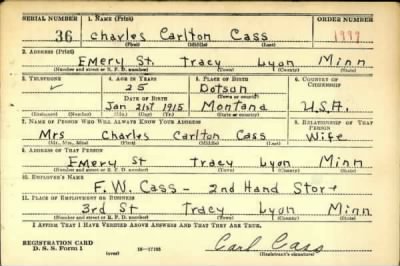 SERIAL NUMBER 1. NAME (Print) ORDER NUMBER
36 Charles Carlton Cass
(First) (Middle) (Last)
2. ADDRESS (Print)
Emery St. Tracy Lyon Minn
(Number and street or R. F. D. number) (Town) (County) (State)
3. TELEPHONE 4. AGE IN YEARS 5. PLACE OF BIRTH 6. COUNTRY OF CITIZENSHIP
✓ 25 Dotson
DATE OF BIRTH (Town or county)
Jan 21st 1915 Montana U.S.A.
(Mo.) (Day) (Yr.) (State or country)
7. NAME OF PERSON WHO WILL ALWAYS KNOW YOUR ADDRESS 8. RELATIONSHIP OF THAT PERSON
Mrs Charles Carlton Cass Wife
(Mr., Mrs., Miss) (First) (Middle) (Last)
9. ADDRESS OF THAT PERSON
Emery St Tracy Lyon Minn
(Number and street or R. F. D. number) (Town) (County) (State)
10. EMPLOYER'S NAME
F. W. Cass - 2nd Hand Store
11. PLACE OF EMPLOYMENT OR BUSINESS
3rd St Tracy Lyon Minn
(Number and street or R. F. D. number) (Town) (County) (State)
I AFFIRM THAT I HAVE VERIFIED ABOVE ANSWERS AND THAT THEY ARE TRUE.
REGISTRATION CARD
D. S. S. Form 1 (over) 16-17105 Carl Cass
(Registrant's signature)